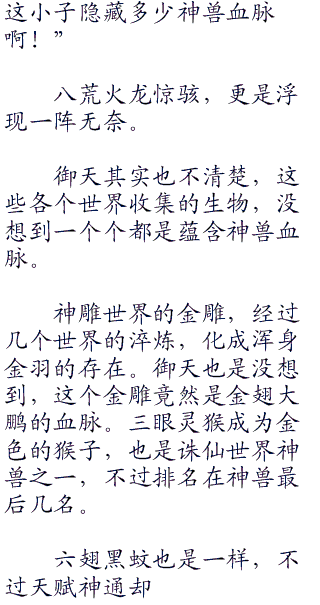 这小子隐藏多少神兽血脉
啊！”
八荒火龙惊骇，更是浮
现一阵无奈。
御天其实也不清楚，这
些各个世界收集的生物，没
想到一个个都是蕴含神兽血
脉。
神雕世界的金雕，经过
几个世界的淬炼，化成浑身
金羽的存在。御天也是没想
到，这个金雕竟然是金翅大
鹏的血脉。三眼灵猴成为金
色的猴子，也是诛仙世界神
兽之一，不过排名在神兽最
后几名。
六翅黑蚊也是一样，不
过天赋神通却